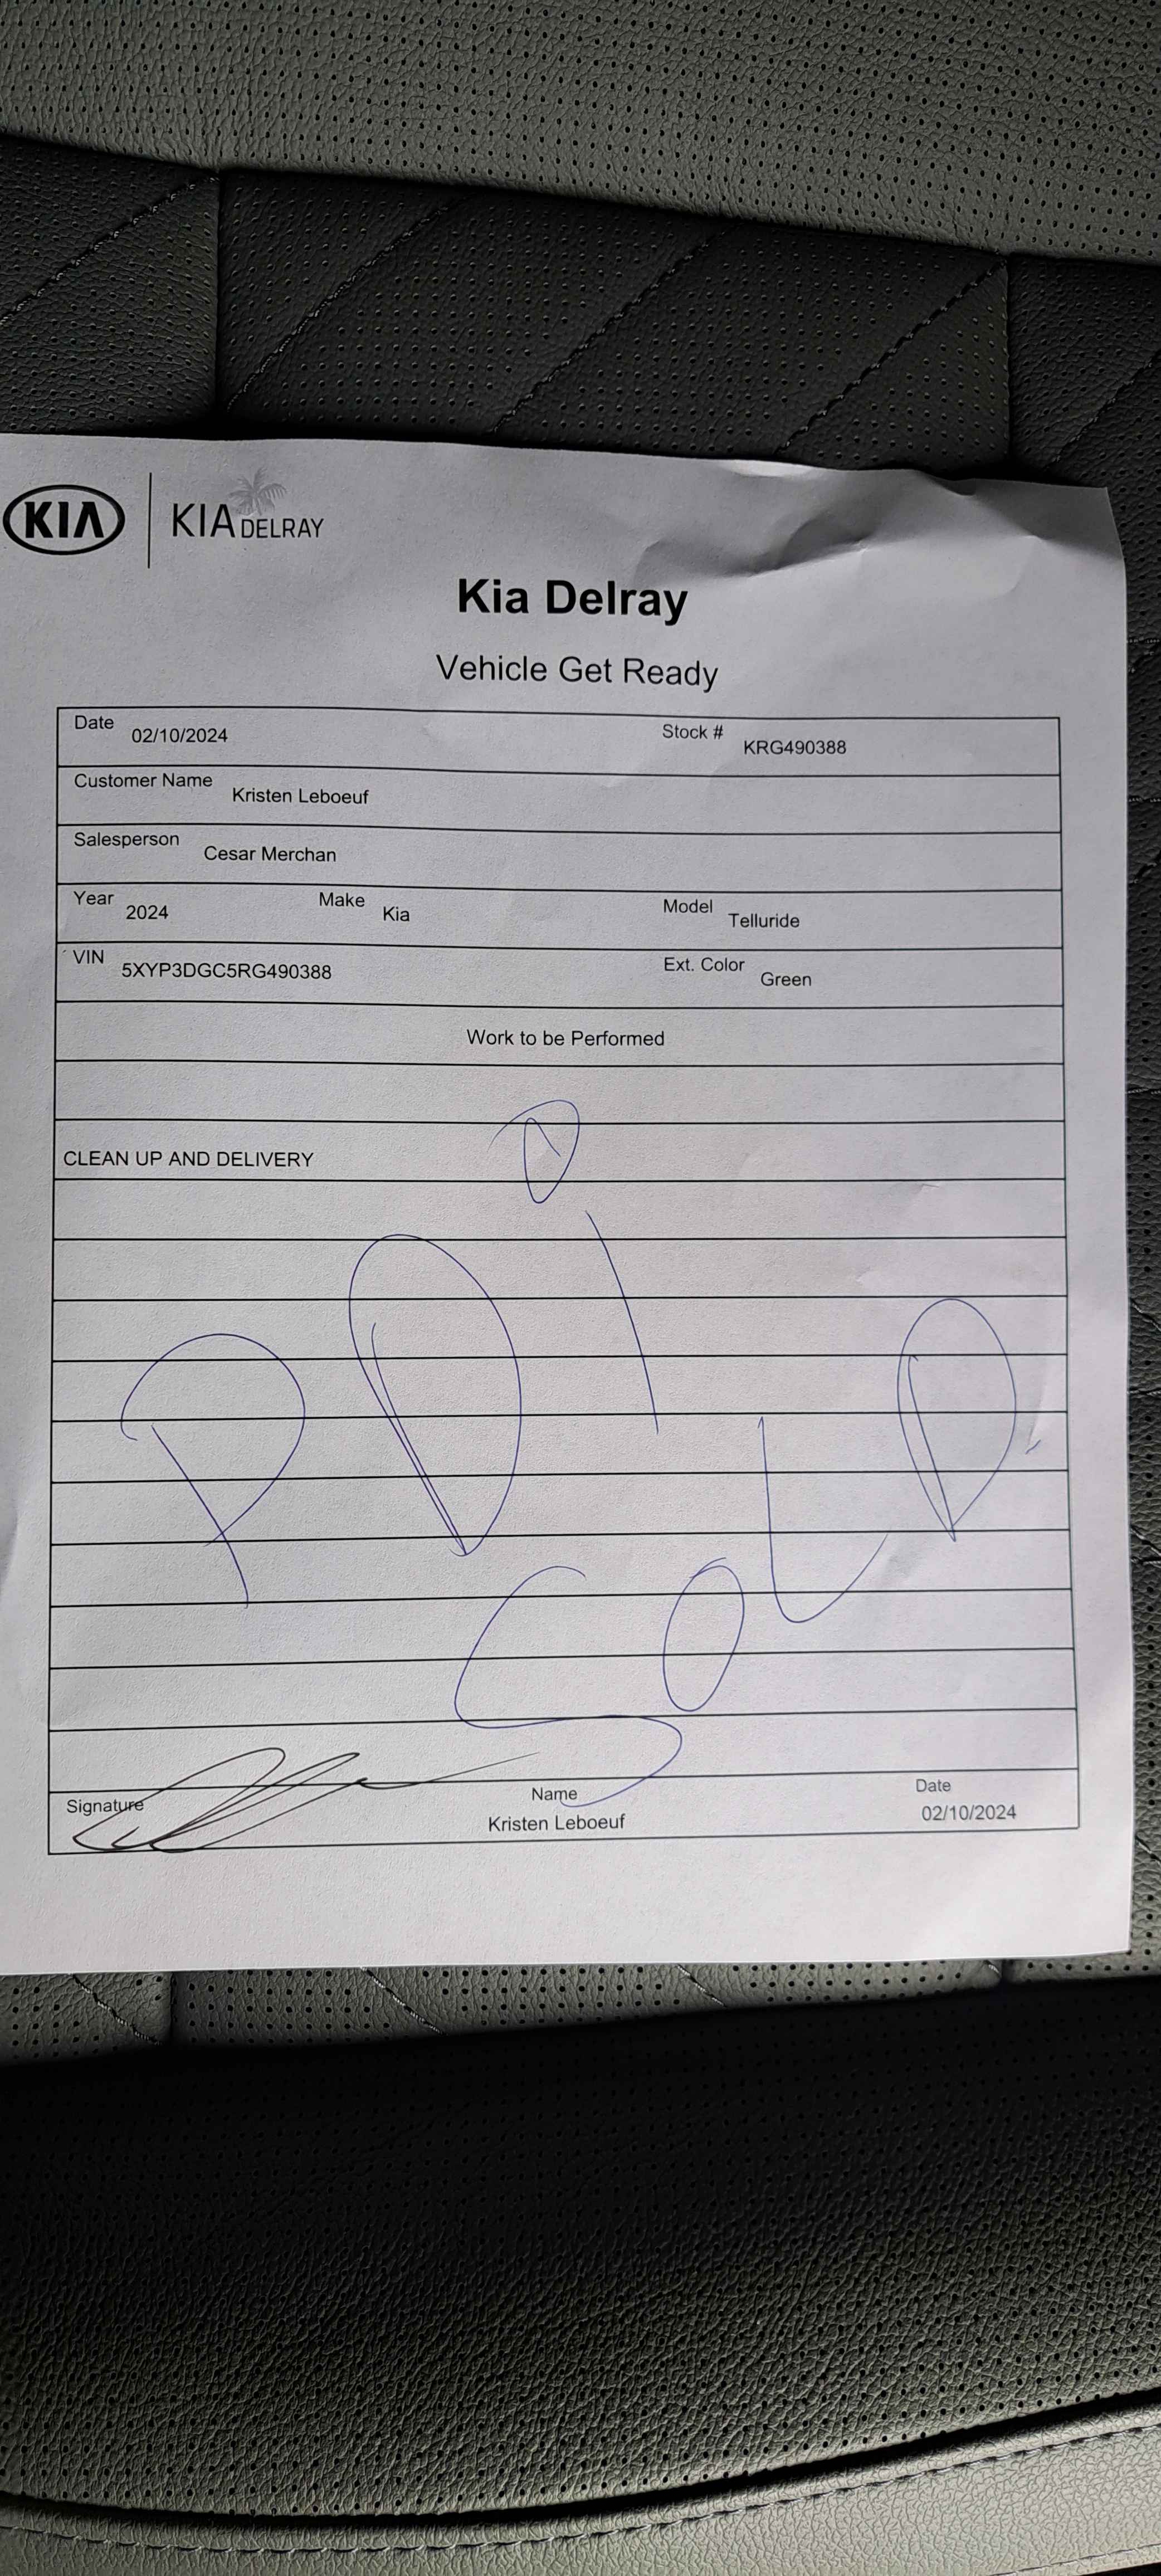 KIA KIA DELRAY
Kia Delray
Vehicle Get Ready
Date 02/10/2024 Stock # KRG490388
Customer Name Kristen Leboeuf
Salesperson Cesar Merchan
Year 2024 Make Kia Model Telluride
VIN 5XYP3DGC5RG490388 Ext. Color Green
Work to be Performed
CLEAN UP AND DELIVERY
PDI
SOLD
Signature Name Date
Kristen Leboeuf 02/10/2024